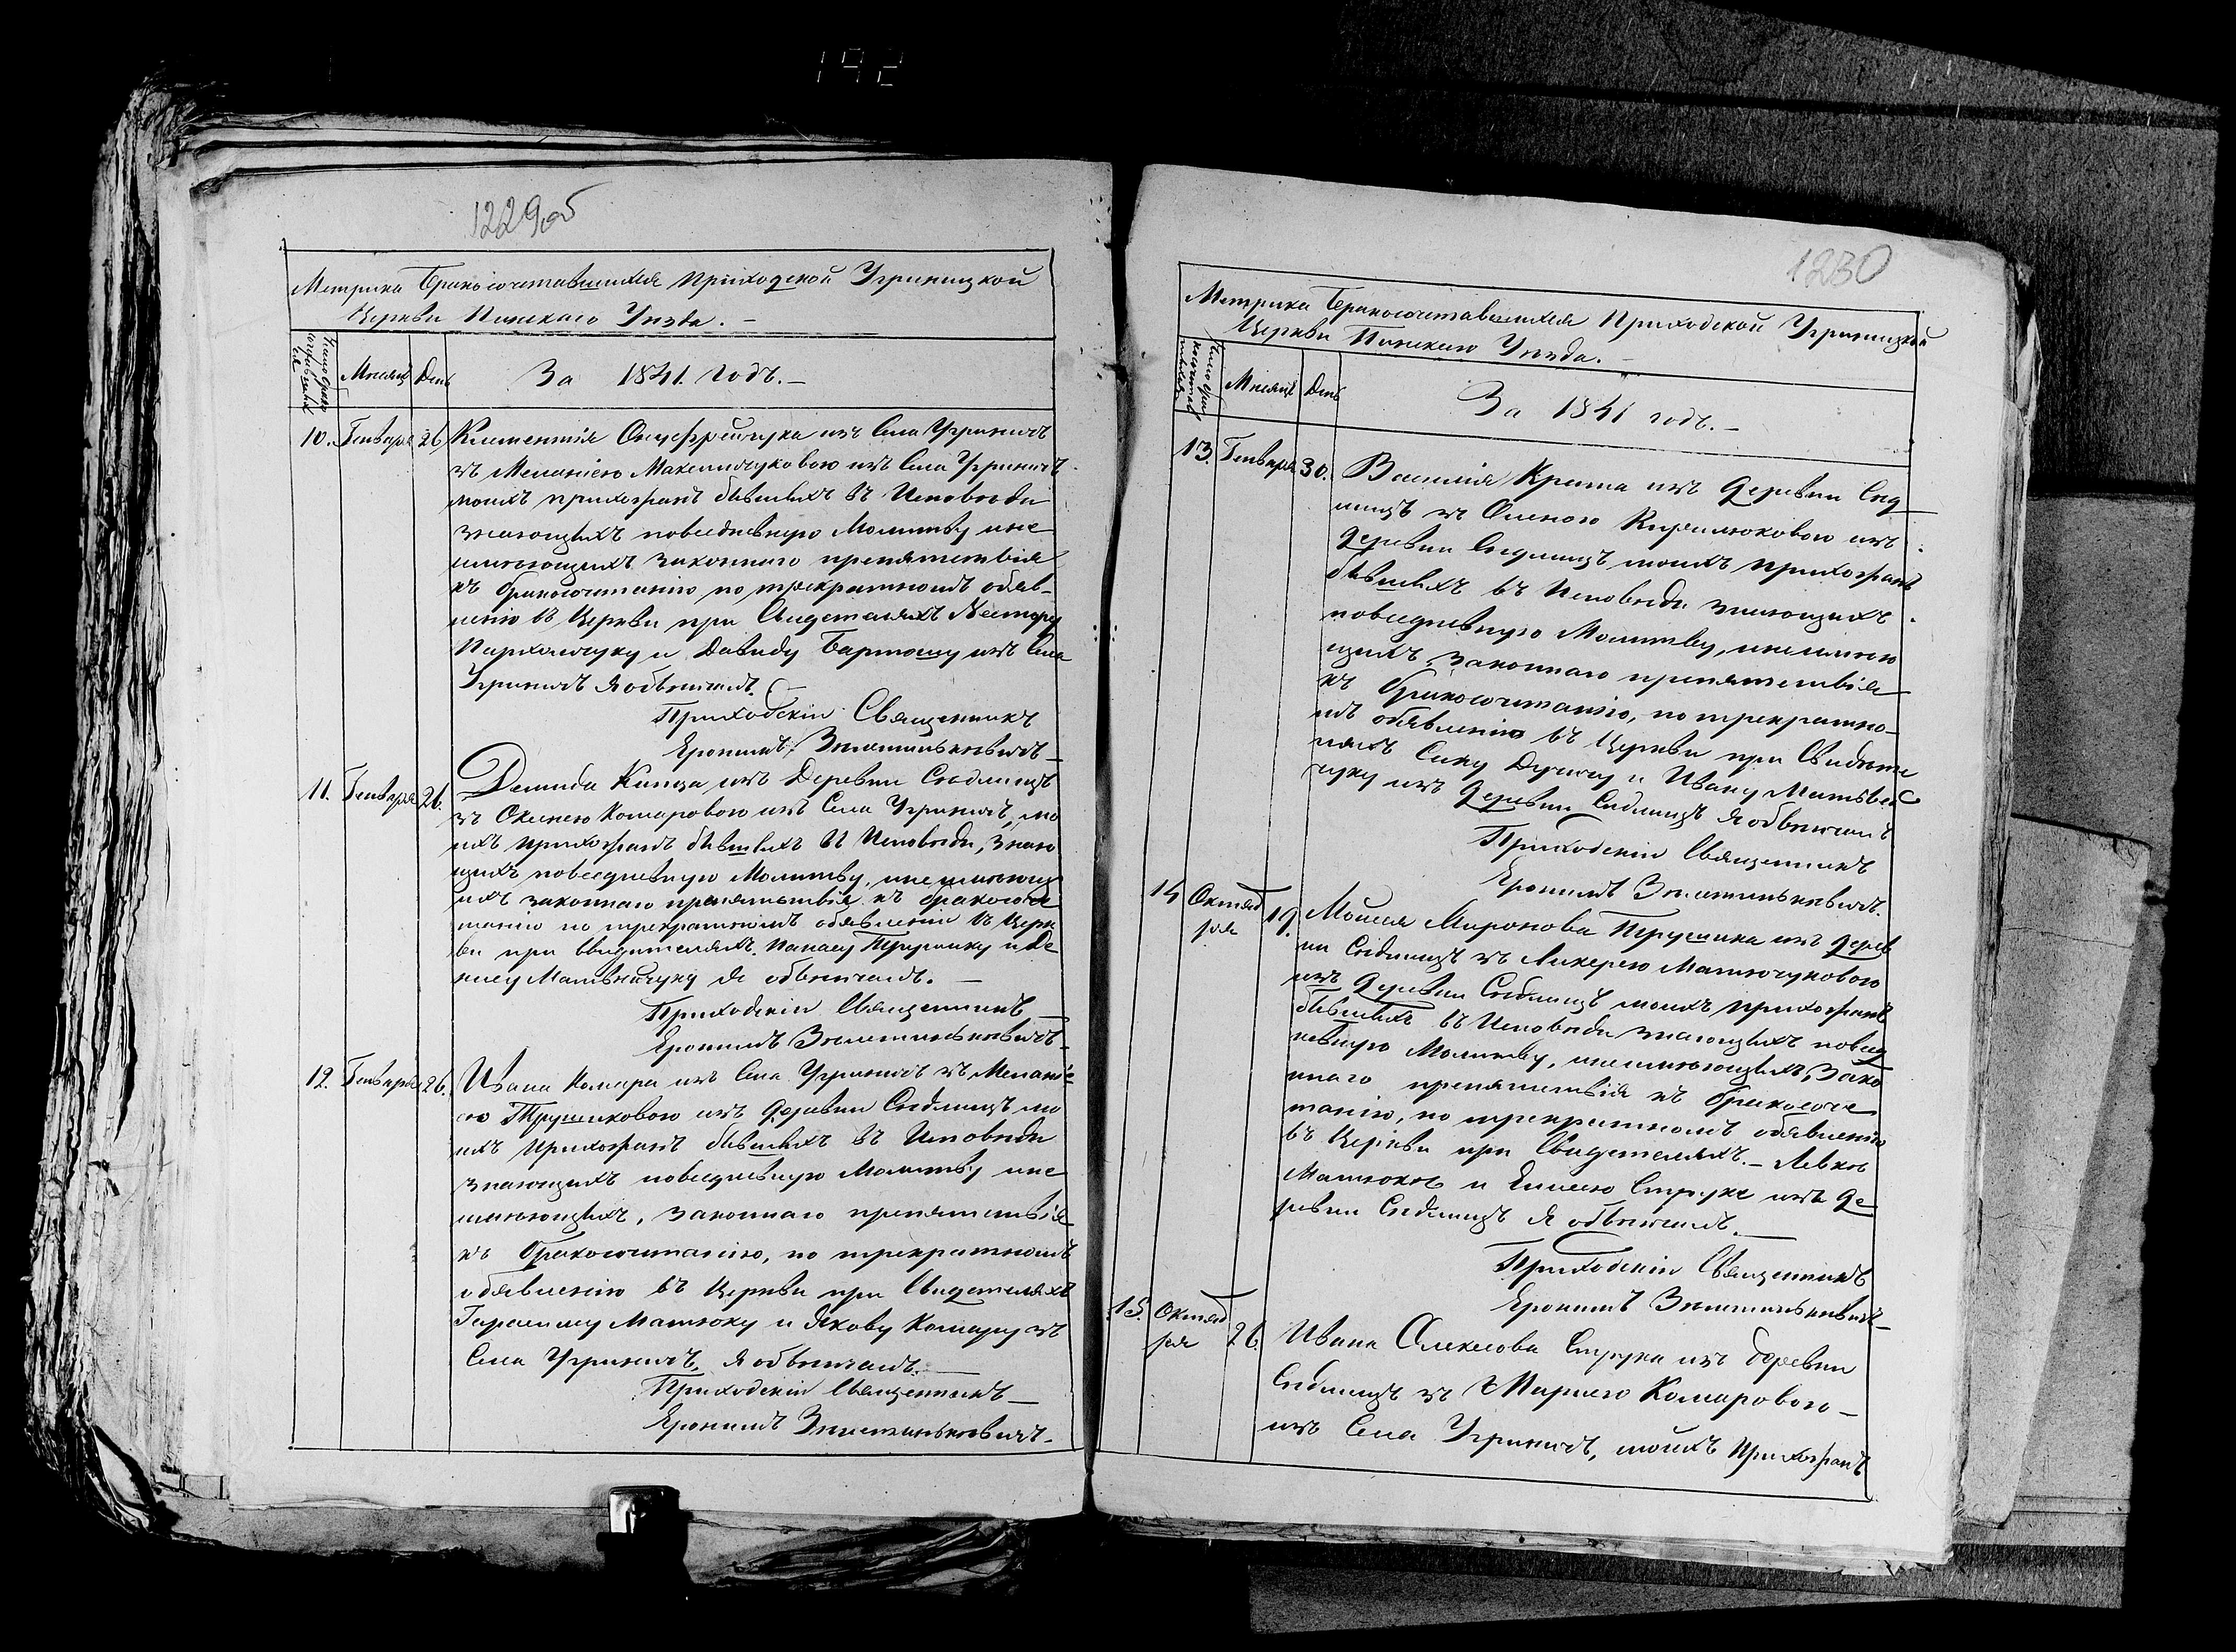 192
1229об
Метрика Бракосочетавшихся Приходской Угриницкой
Церкви Пинскаго Уезда. –
Месяцъ День За 1841. годъ. –
10. Генваря 26 Климентія Онуфрейчука изъ Села Угриничъ
зъ Меланіею Максимчуковою изъ Села Угриничъ
моихъ прихожанъ бывшихъ въ Исповѣди
знающихъ повседневную Молитву и не
имѣющихъ законнаго препятствія
къ бракосочетанію по трекратномъ объяв-
ленію въ Церкви при Свидетеляхъ Нестору
Пархомчуку и Давиду Бартошу изъ Села
Угриничъ я обвѣнчалъ.
Приходскій Священникъ
Еронимъ
11. Генваря 26. Демида Кинца изъ Деревни Сѣдлищъ
зъ Оксинею Комаровою изъ Села Угриничъ, мо
ихъ прихожанъ бывшихъ въ Исповѣди, знаю
щихъ повседневную Молитву, и не имѣющ
ихъ законнаго препятствія къ бракосоче
танію по трекратномъ объявленію въ Церк
ви при Свидетеляхъ Панасу Трушику и Де
нису Матвейчуку я обвѣнчалъ. –
Приходскій Священникъ
Еронимъ
12. Генваря 26. Ивана Комара изъ Села Угриничъ зъ Меланіе
ею Трушиковою изъ Деревни Сѣдлищъ мо
ихъ Прихожанъ бывшихъ въ Исповѣди
знающихъ повседневную Молитву и не
имѣющихъ, законнаго препятствія
къ бракосочетанію, по трекратномъ
объявленію въ Церкви при Свидетеляхъ
Герасиму Матюку и Якову Комару зъ
Села Угриничъ, я обвѣнчалъ.
Приходскій Священникъ
Еронимъ
1230
Метрика Бракосочетавшихся Приходской Угриницкой
Церкви Пинскаго Уезда. –
Месяцъ День За 1841 годъ. –
13. Генваря 30. Василія Крита изъ Деревни Сѣд
лищъ зъ Оленою Кирилюковою изъ
Деревни Сѣдлищъ моихъ прихожанъ
бывшихъ въ Исповѣди знающихъ
повседневную Молитву, и не имѣю
щихъ, законнаго препятствія
къ бракосочетанію, по трекратно-
мъ объявленію въ Церкви при Свидѣте
ляхъ и Ивану Матвей
чуку изъ Деревни Сѣдлищъ я обвѣнчалъ
Приходскій Священникъ
Еронимъ
14 Октяб
ря 19. Моисея Миронова Трушика изъ Дерев
ни Сѣдлищъ зъ Лукерею Матючуковою
изъ Деревни Сѣдлищъ моихъ прихожанъ
бывшихъ въ Исповѣди знающихъ повсед
невную Молитву, и не имѣющихъ, зако
ннаго препятствія къ бракосоче
танію, по трекратномъ объявленію
въ Церкви при Свидетеляхъ. – Левкѣ
Матюкѣ и Елисею Струкѣ изъ Де
ревни Сѣдлищъ я обвѣнчалъ.
Приходскій Священникъ
Еронимъ
15. Октяб
ря 26. Ивана Алексѣова Струка изъ деревни
Сѣдлищъ зъ Мариею Комаровою –
изъ Села Угриничъ, моихъ Прихожанъ